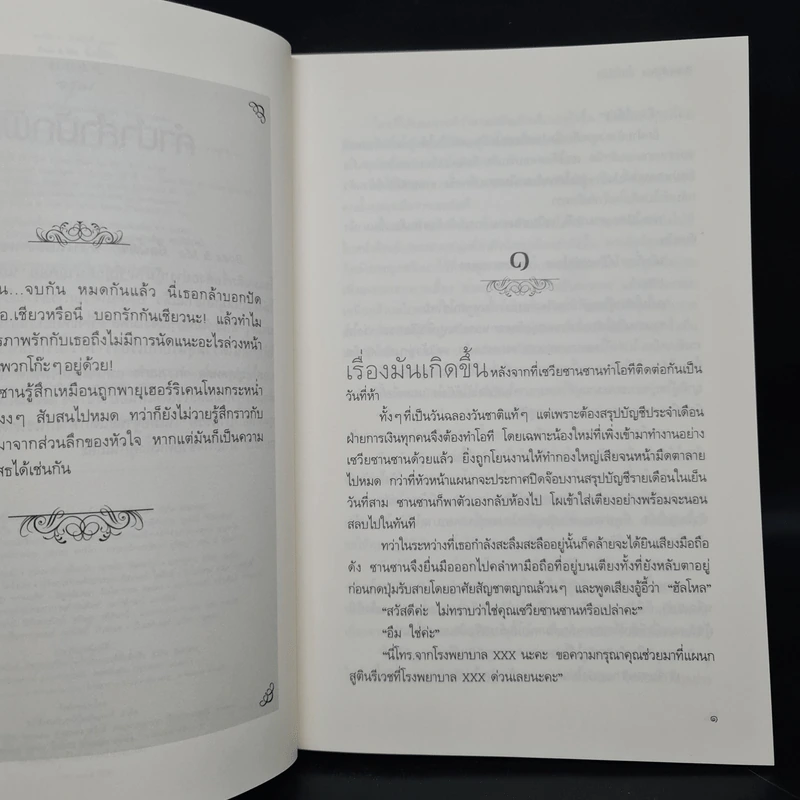 น...จบกัน หมดกันแล้ว นี่เธอกล้าบอกปัด
อ.เซียวหรือนี่ บอกรักกันเชียวนะ! แล้วทำไม
รภาพรักกับเธอถึงไม่มีการนัดแนะอะไรล่วงหน้า
พวกโก๊ะๆอยู่ด้วย!
ซานรู้สึกเหมือนถูกพายุเฮอร์ริเคนโหมกระหน่ำ
งงๆ สับสนไปหมด ทว่าก็ยังไม่วายรู้สึกราวกับ
มาจากส่วนลึกของหัวใจ หากแต่มันก็เป็นความ
สธได้เช่นกัน
๑
เรื่องมันเกิดขึ้น หลังจากที่เซวียซานซานทำโอทีติดต่อกันเป็น
วันที่ห้า
ทั้งๆที่เป็นวันฉลองวันชาติแท้ๆ แต่เพราะต้องสรุปบัญชีประจำเดือน
ฝ่ายการเงินทุกคนจึงต้องทำโอที โดยเฉพาะน้องใหม่ที่เพิ่งเข้ามาทำงานอย่าง
เซวียซานซานด้วยแล้ว ยิ่งถูกโยนงานให้ทำกองใหญ่เสียจนหน้ามืดตาลาย
ไปหมด กว่าที่หัวหน้าแผนกจะประกาศปิดจ๊อบงานสรุปบัญชีรายเดือนในเย็น
วันที่สาม ซานซานก็พาตัวเองกลับห้องไป โผเข้าใส่เตียงอย่างพร้อมจะนอน
สลบไปในทันที
ทว่าในระหว่างที่เธอกำลังสะลึมสะลืออยู่นั้นก็คล้ายจะได้ยินเสียงมือถือ
ดัง ซานซานจึงยื่นมือออกไปคลำหามือถือที่อยู่บนเตียงทั้งที่ยังหลับตาอยู่
ก่อนกดปุ่มรับสายโดยอาศัยสัญชาตญาณล้วนๆ และพูดเสียงอู้อี้ว่า “ฮัลโหล”
“สวัสดีค่ะ ไม่ทราบว่าใช่คุณเซวียซานซานหรือเปล่าคะ”
“อืม ใช่ค่ะ”
“นี่โทร.จากโรงพยาบาล XXX นะคะ ขอความกรุณาคุณช่วยมาที่แผนก
สูตินรีเวชที่โรงพยาบาล XXX ด่วนเลยนะคะ”
๑